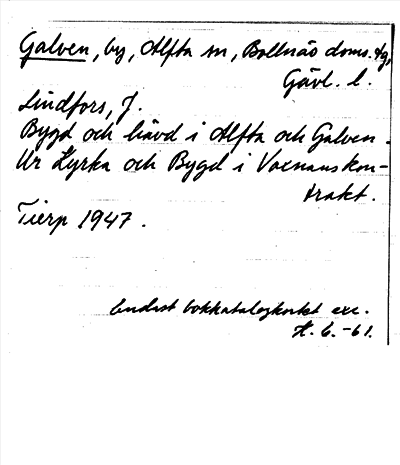 Galven, by, Alfta sn, Bollnäs doms. tg,
Gävl. l.
Lindfors, J.
Bygd och hävd i Alfta och Galven.
Ur Kyrka och Bygd i Voxnanskon-
trakt.
Tierp 1947.
Endast bokkatalogkortet exc.
H. 6. -61.